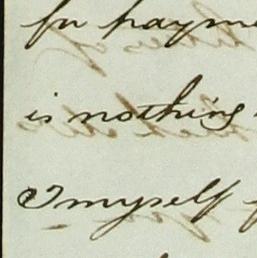 for payme
is nothing
I myself f